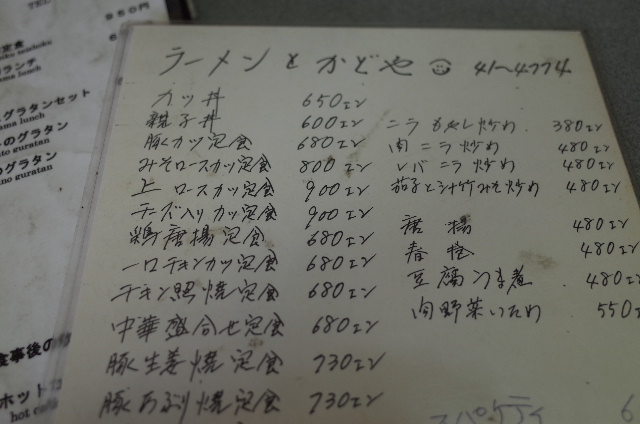 ラーメンとかどや 41〜4774
カツ丼 650エン
親子丼 600エン
豚カツ定食 680エン
みそロースカツ定食 800エン
上ロースカツ定食 900エン
チーズ入りカツ定食 900エン
鶏唐揚定食 680エン
一口チキンカツ定食 680エン
チキン照焼定食 680エン
中華盛合せ定食 680エン
豚生姜焼定食 730エン
豚あぶり焼定食 730エン
ニラもやし炒め 380エン
肉ニラ炒め 480エン
レバニラ炒め 480エン
茄子と竹みそ炒め 480エン
唐揚 480エン
春捲 480エン
豆腐うま煮 480エン
肉野菜いため 550エン
スパゲティ 6
TEL
950円
定食
ランチ
グラタンセット
のグラタン
guratan
のグラタン
no guratan
食事後の
ホット
hot